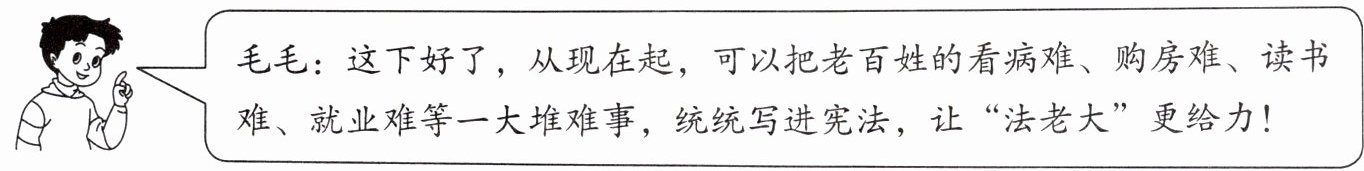 毛毛：这下好了，从现在起，可以把老百姓的看病难、购房难、读书
难、就业难等一大堆难事，统统写进宪法，让“法老大”更给力！